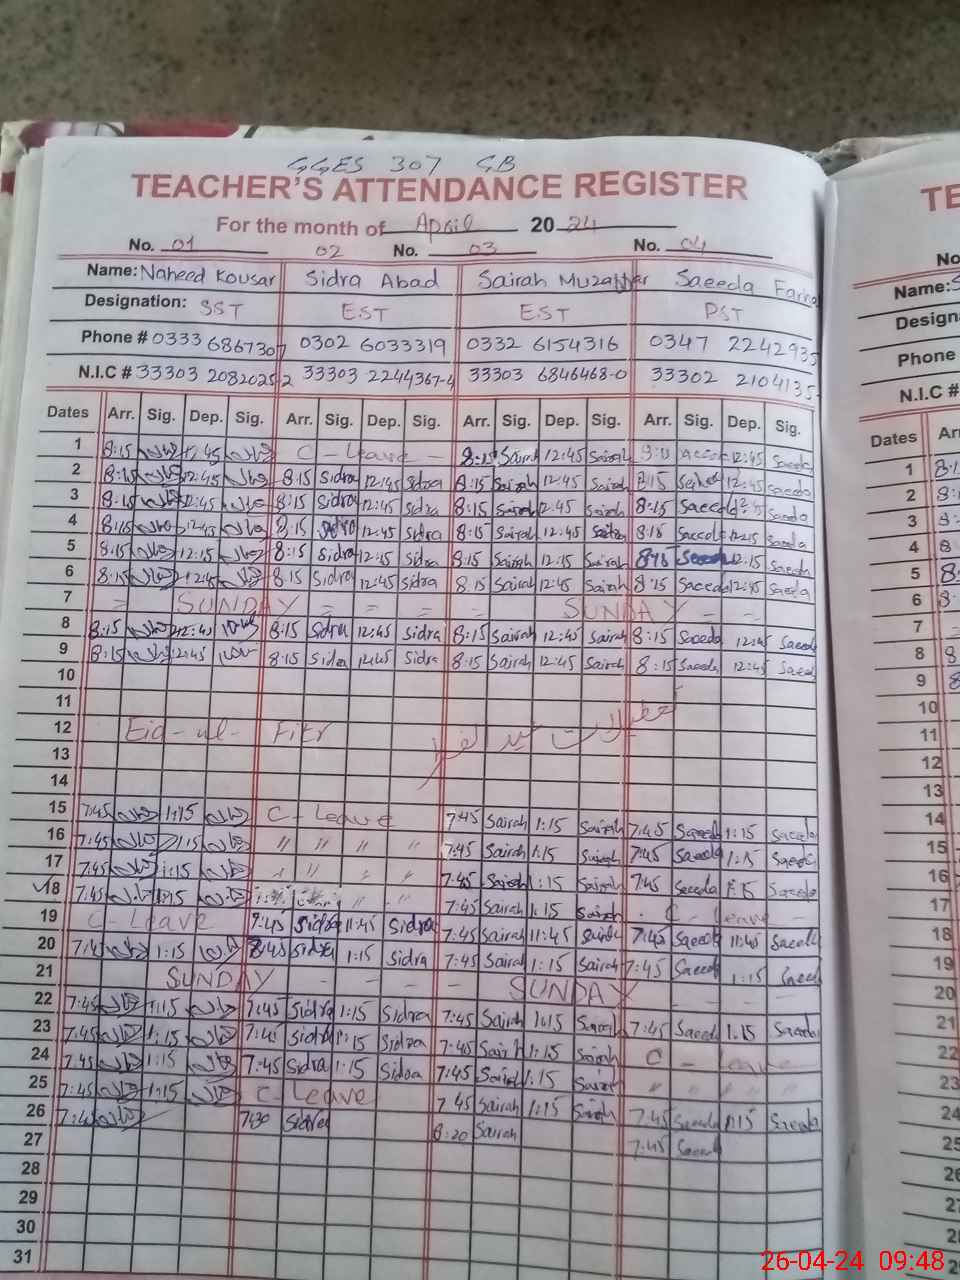 GGES 307 GB
TEACHER'S ATTENDANCE REGISTER
For the month of April 2024
No. 01 02 No. 03 No. 04
Name: Naheed Kousar Sidra Abad Sairah Muzaffar Saeeda
Designation: SST EST EST PST
Phone # 0333 6867307 0302 6033319 0332 6154316 0347 2242935
N.I.C # 33303 2082025 2 33303 2244367-4 33303 6846468-0 33302 2104135
Dates Arr. Sig. Dep. Sig. Arr. Sig. Dep. Sig. Arr. Sig. Dep. Sig. Arr. Sig. Dep. Sig.
1 8:15 12:45 C-Leave 8:15 Sairah 12:45 Sairah 12:45 Saeeda
2 8:15 12:45 8:15 Sidra 12:45 Sidra 8:15 Sairah 12:45 Sairah 8:15 12:45 Saeeda
3 8:15 12:45 8:15 Sidra 12:45 Sidra 8:15 Sairah 12:45 Sairah 8:15 Saeeda Saeeda
4 8:15 12:45 8:15 Sidra 12:45 Sidra 8:15 Sairah 12:45 8:15 Saeeda Saeeda
5 8:15 12:15 8:15 Sidra 12:15 Sidra 8:15 Sairah 12:15 Sairah Saeeda 12:15 Saeeda
6 8:15 12:45 8:15 Sidra 12:45 Sidra 8:15 Sairah 12:45 Sairah 8:15 Saeeda 12:45 Saeeda
7 SUNDAY SUNDAY
8 8:15 12:45 8:15 Sidra 12:45 Sidra 8:15 Sairah 12:45 Sairah 8:15 Saeeda 12:45 Saeeda
9 8:15 12:45 8:15 Sidra 12:45 Sidra 8:15 Sairah 12:45 Sairah 8:15 Saeeda 12:45 Saeed
10
11
12 Eid-ul-Fitr تعطیلات عید الفطر
13
14
15 7:45 1:15 C-Leave 7:45 Sairah 1:15 Sairah 7:45 Saeeda 1:15 Saeeda
16 7:45 1:15 " " " " 7:45 Sairah 1:15 Sairah 7:45 Saeeda 1:15 Saeeda
17 7:45 1:15 " " " 7:45 Sairah 1:15 Sairah 7:45 Saeeda 1:15 Saeeda
18 7:45 1:15 " " 7:45 Sairah 1:15 Sairah C-Leave
19 C-Leave 7:45 Sidra 11:45 Sidra 7:45 Sairah 11:45 7:45 Saeeda 11:45 Saeeda
20 7:45 1:15 Sidra 1:15 Sidra 7:45 Sairah 1:15 Sairah 7:45 Saeeda 1:15 Saeed
21 SUNDAY SUNDAY
22 7:45 1:15 7:45 Sidra 1:15 Sidra 7:45 Sairah 1:15 Sairah 7:45 Saeeda 1:15 Saeeda
23 7:45 1:15 7:45 Sidra 1:15 Sidra 7:45 Sairah 1:15 Sairah C-Leave
24 7:45 1:15 7:45 Sidra 1:15 Sidra 7:45 Sairah 1:15 Sairah " " " " "
25 7:45 1:15 C-Leave 7:45 Sairah 1:15 Sairah 7:45 Saeeda 1:15 Saeeda
26 7:45 7:30 Sidra 8:20 Sairah 7:45 Saeeda
27
28
29
30
31
TE
No
Name: S
Design
Phone
N.I.C #
Dates Ar
1 8:1
2 8:
3 8:
4 8
5 8:
6 8:
7
8 8
9 8
10
11
12
13
14
15
16
17
18
19
20
21
22
23
24
25
26-04-24 09:48